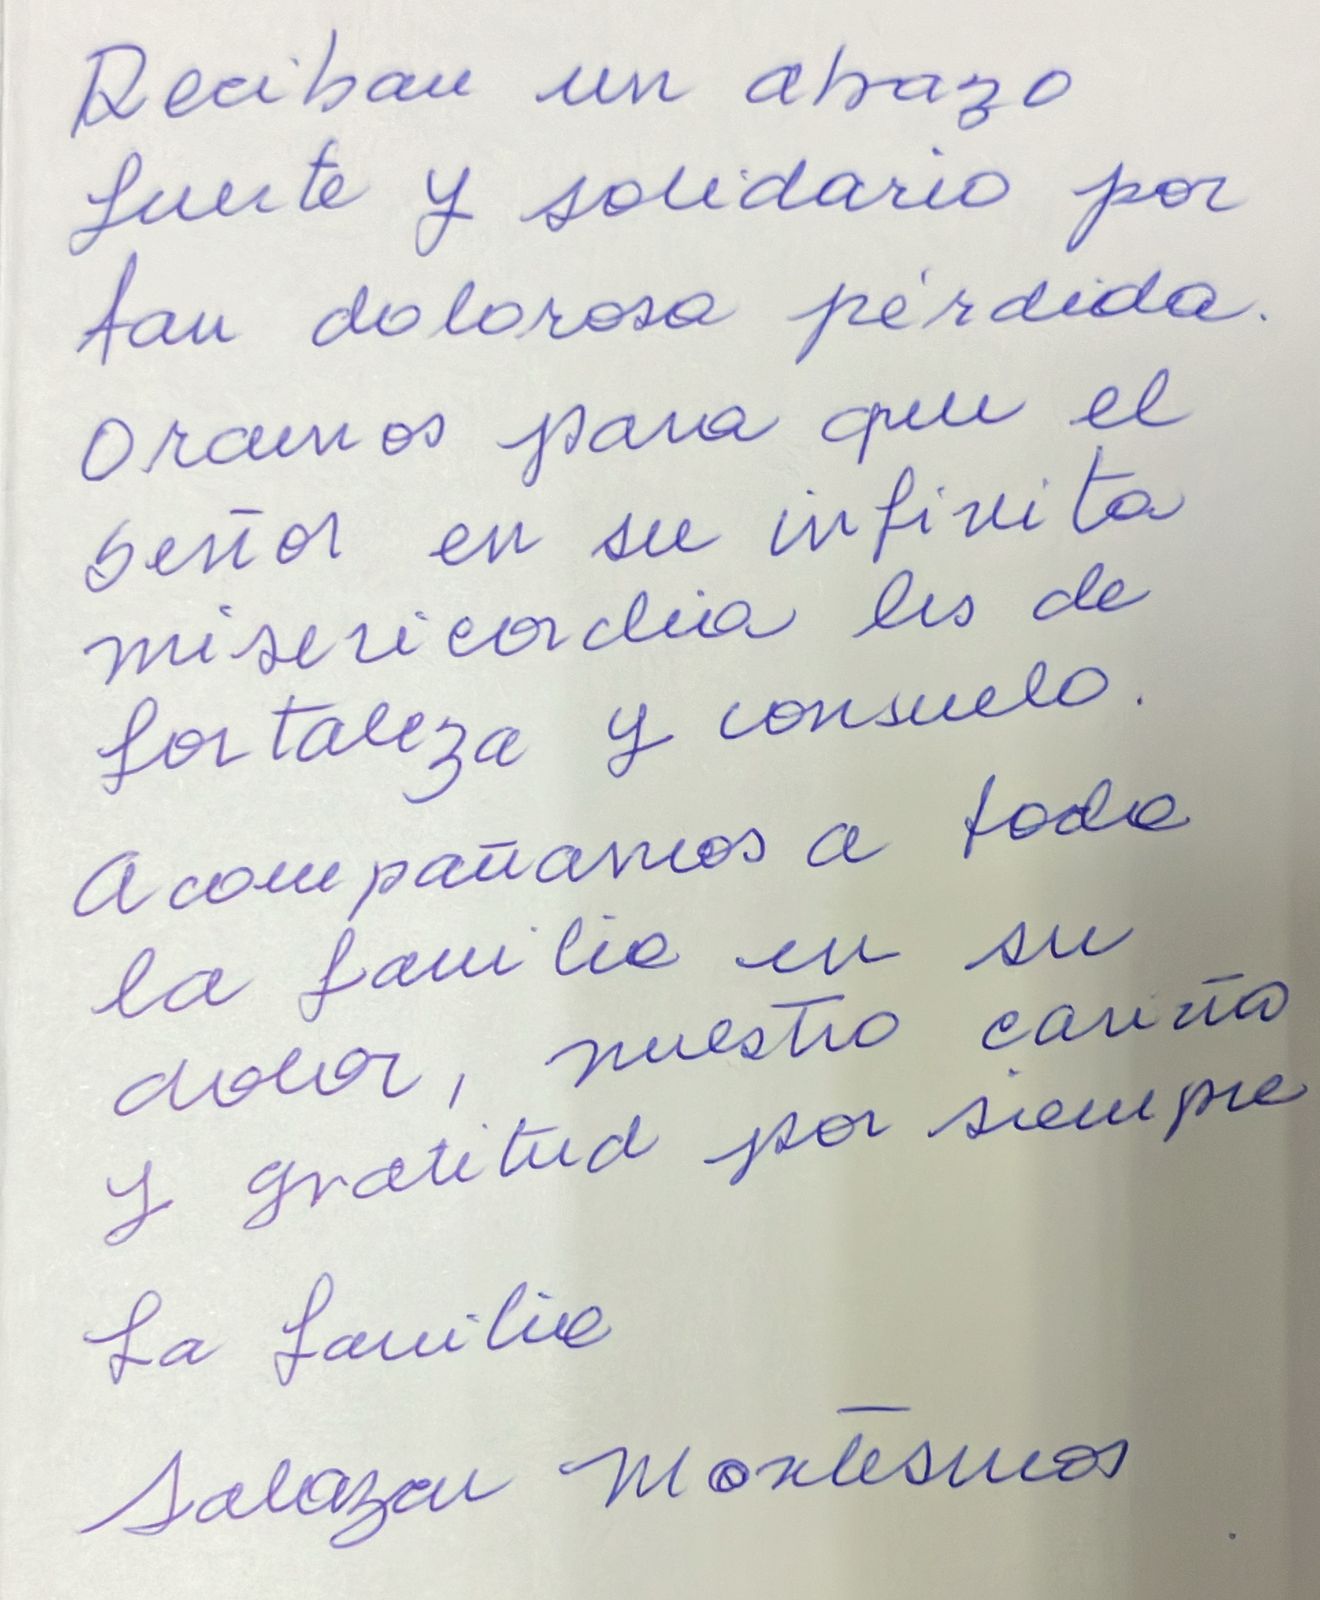 Reciban un abrazo
fuerte y solidario por
tan dolorosa pérdida.
Oramos para que el
Señor en su infinita
misericordia les de
fortaleza y consuelo.
Acompañamos a toda
la familia en su
dolor, nuestro cariño
y gratitud por siempre
La familia
Salazar